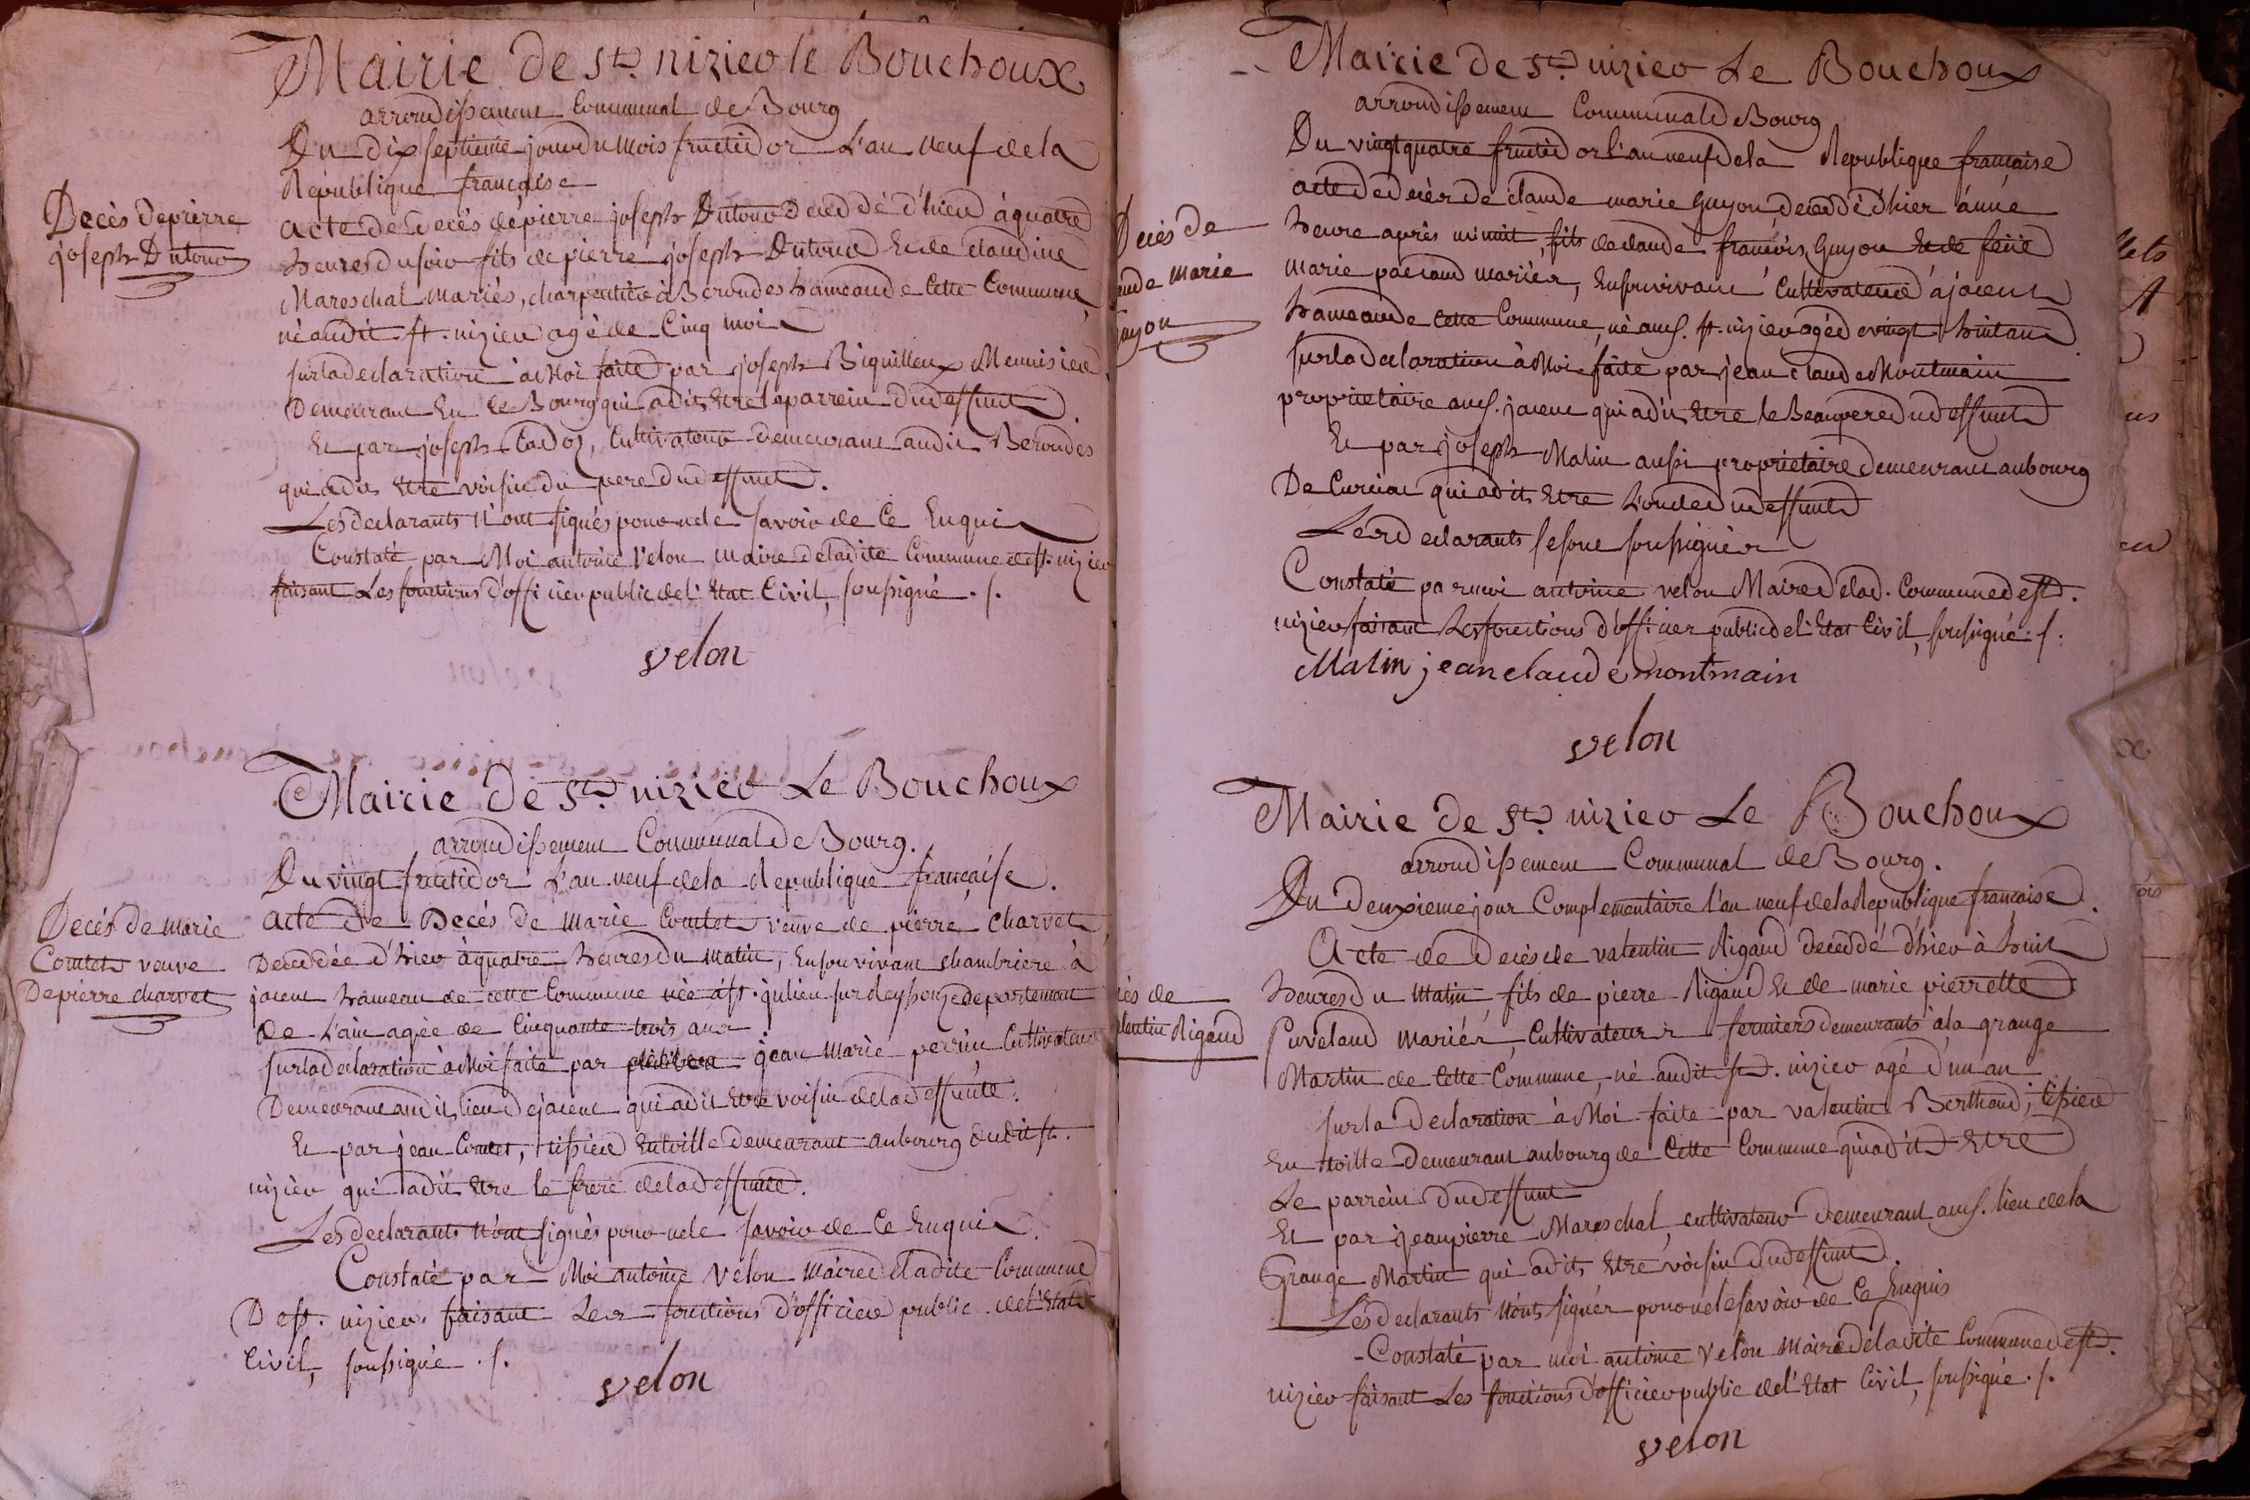 Mairie de St. nizier le Bouchoux
arrondissement Communal de Bourg
Du dix septieme jour du Mois fructidor L'an neuf de la
Republique française
Decès de pierre
joseph Dutour
acte de Decès de pierre joseph Dutour Decedé d'hier à quatre
heures du soir fils de pierre joseph Dutour Et de Claudine
Mareschal mariés, charpentier à Beroudes hameau de Cette Commune,
né audit st. nizier agé de Cinq mois
sur la declaration à Moi faite par joseph Menuisier
Demeurant En ce Bourg qui a dit Etre le parrein dud effunt
Et par joseph Cadoz, Cultivateur demeurant audit Beroudes
qui a dit Etre voisin du pere dud effunt.
Les declarants n'ont signés pour ne le savoir de Ce Enquis
Constaté par Moi antoine Velon maire de ladite Commune de st. nizier
faisant Les fonctions d'officier public de l'Etat Civil, soussigné . s.
velon
Mairie de St. nizier Le Bouchoux
arrondissement Communal de Bourg.
Du vingt fructidor L'an neuf de la Republique française.
Decés de Marie
Comtet veuve
De pierre charvet
acte de Decés de Marie Comtet veuve de pierre Charvet,
Decedée d'hier à quatre heures du matin, En son vivant chambriere à
jacent hameau de cette Commune née à st. julien sur Reyssouze departement
de L'ain agée de Cinquante trois ans
sur la declaration à Moi faite par jean Marie perrin Cultivateur
Demeurant audit lieu de jacent qui a dit Etre voisin de lad effunte.
Et par jean Comtet, tissier En toille demeurant au bourg dudit st.
nizier qui a dit Etre le frere de lad effunte.
Les declarants n'ont signés pour ne le savoir de Ce Enquis.
Constaté par Moi antoine Velon maire de ladite Commune
De st. nizier faisant Les fonctions d'officier public de l'Etat
Civil, soussigné . s.
velon
Mairie de St. nizier Le Bouchoux
arrondissement Communal de Bourg
Du vingt quatre fructidor l'an neuf de la Republique française
Decés de
aude Marie
Guyon
acte de decès de claude marie Guyon decedé d'hier à une
heure après minuit, fils de claude françois Guyon Et de feüe
marie paccaud mariés, En son vivant Cultivateur à jacent
hameau de cette Commune, né aud. st. nizier agé de vingt huit ans
sur la declaration à Moi faite par jean claude Montmain
proprietaire aud. jacent qui a dit Etre le Beau pere dud effunt
Et par joseph Malin aussi proprietaire demeurant au bourg
De Curciat qui a dit Etre L'oncle dud effunt
Les declarants se sont soussignés
Constaté par moi antoine velon Maire de lad. Commune de st.
nizier faisant Les fonctions d'officier public de l'Etat Civil, soussigné . s.
Malin jean claude montmain
velon
Mairie de St. nizier Le Bouchoux
arrondissement Communal de Bourg.
Du deuxieme jour Complementaire l'an neuf de la Republique française.
cès de
lentin Rigaud
Acte de Decés de valentin Rigaud decedé d'hier à huit
heures du Matin, fils de pierre Rigaud Et de marie pierrette
Puvelaud mariés, Cultivateurs fermiers demeurants à la grange
Martin de Cette Commune, né audit st. nizier agé d'un an
sur la Declaration à Moi faite par valentin Berthaud, tissier
En toille Demeurant au bourg de Cette Commune qui a dit Etre
Le parrein dud effunt
Et par jean pierre Mareschal, cultivateur demeurant aud. lieu de la
Grange Martin qui a dit Etre voisin dud effunt.
Les declarants n'ont signés pour ne le savoir de Ce Enquis
Constaté par moi antoine Velon Maire de ladite Commune de st.
nizier faisant Les fonctions d'officier public de l'Etat Civil, soussigné . s.
velon